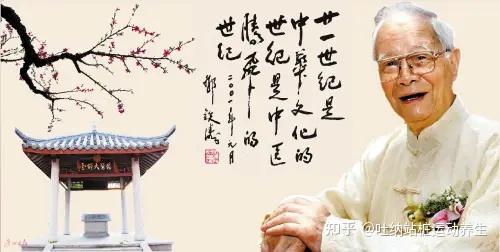 廿一世纪是
中華文化的
世纪是中医
腾飞的
世纪
二〇〇一年元月
邓铁涛
知乎 @吐纳站桩运动养生